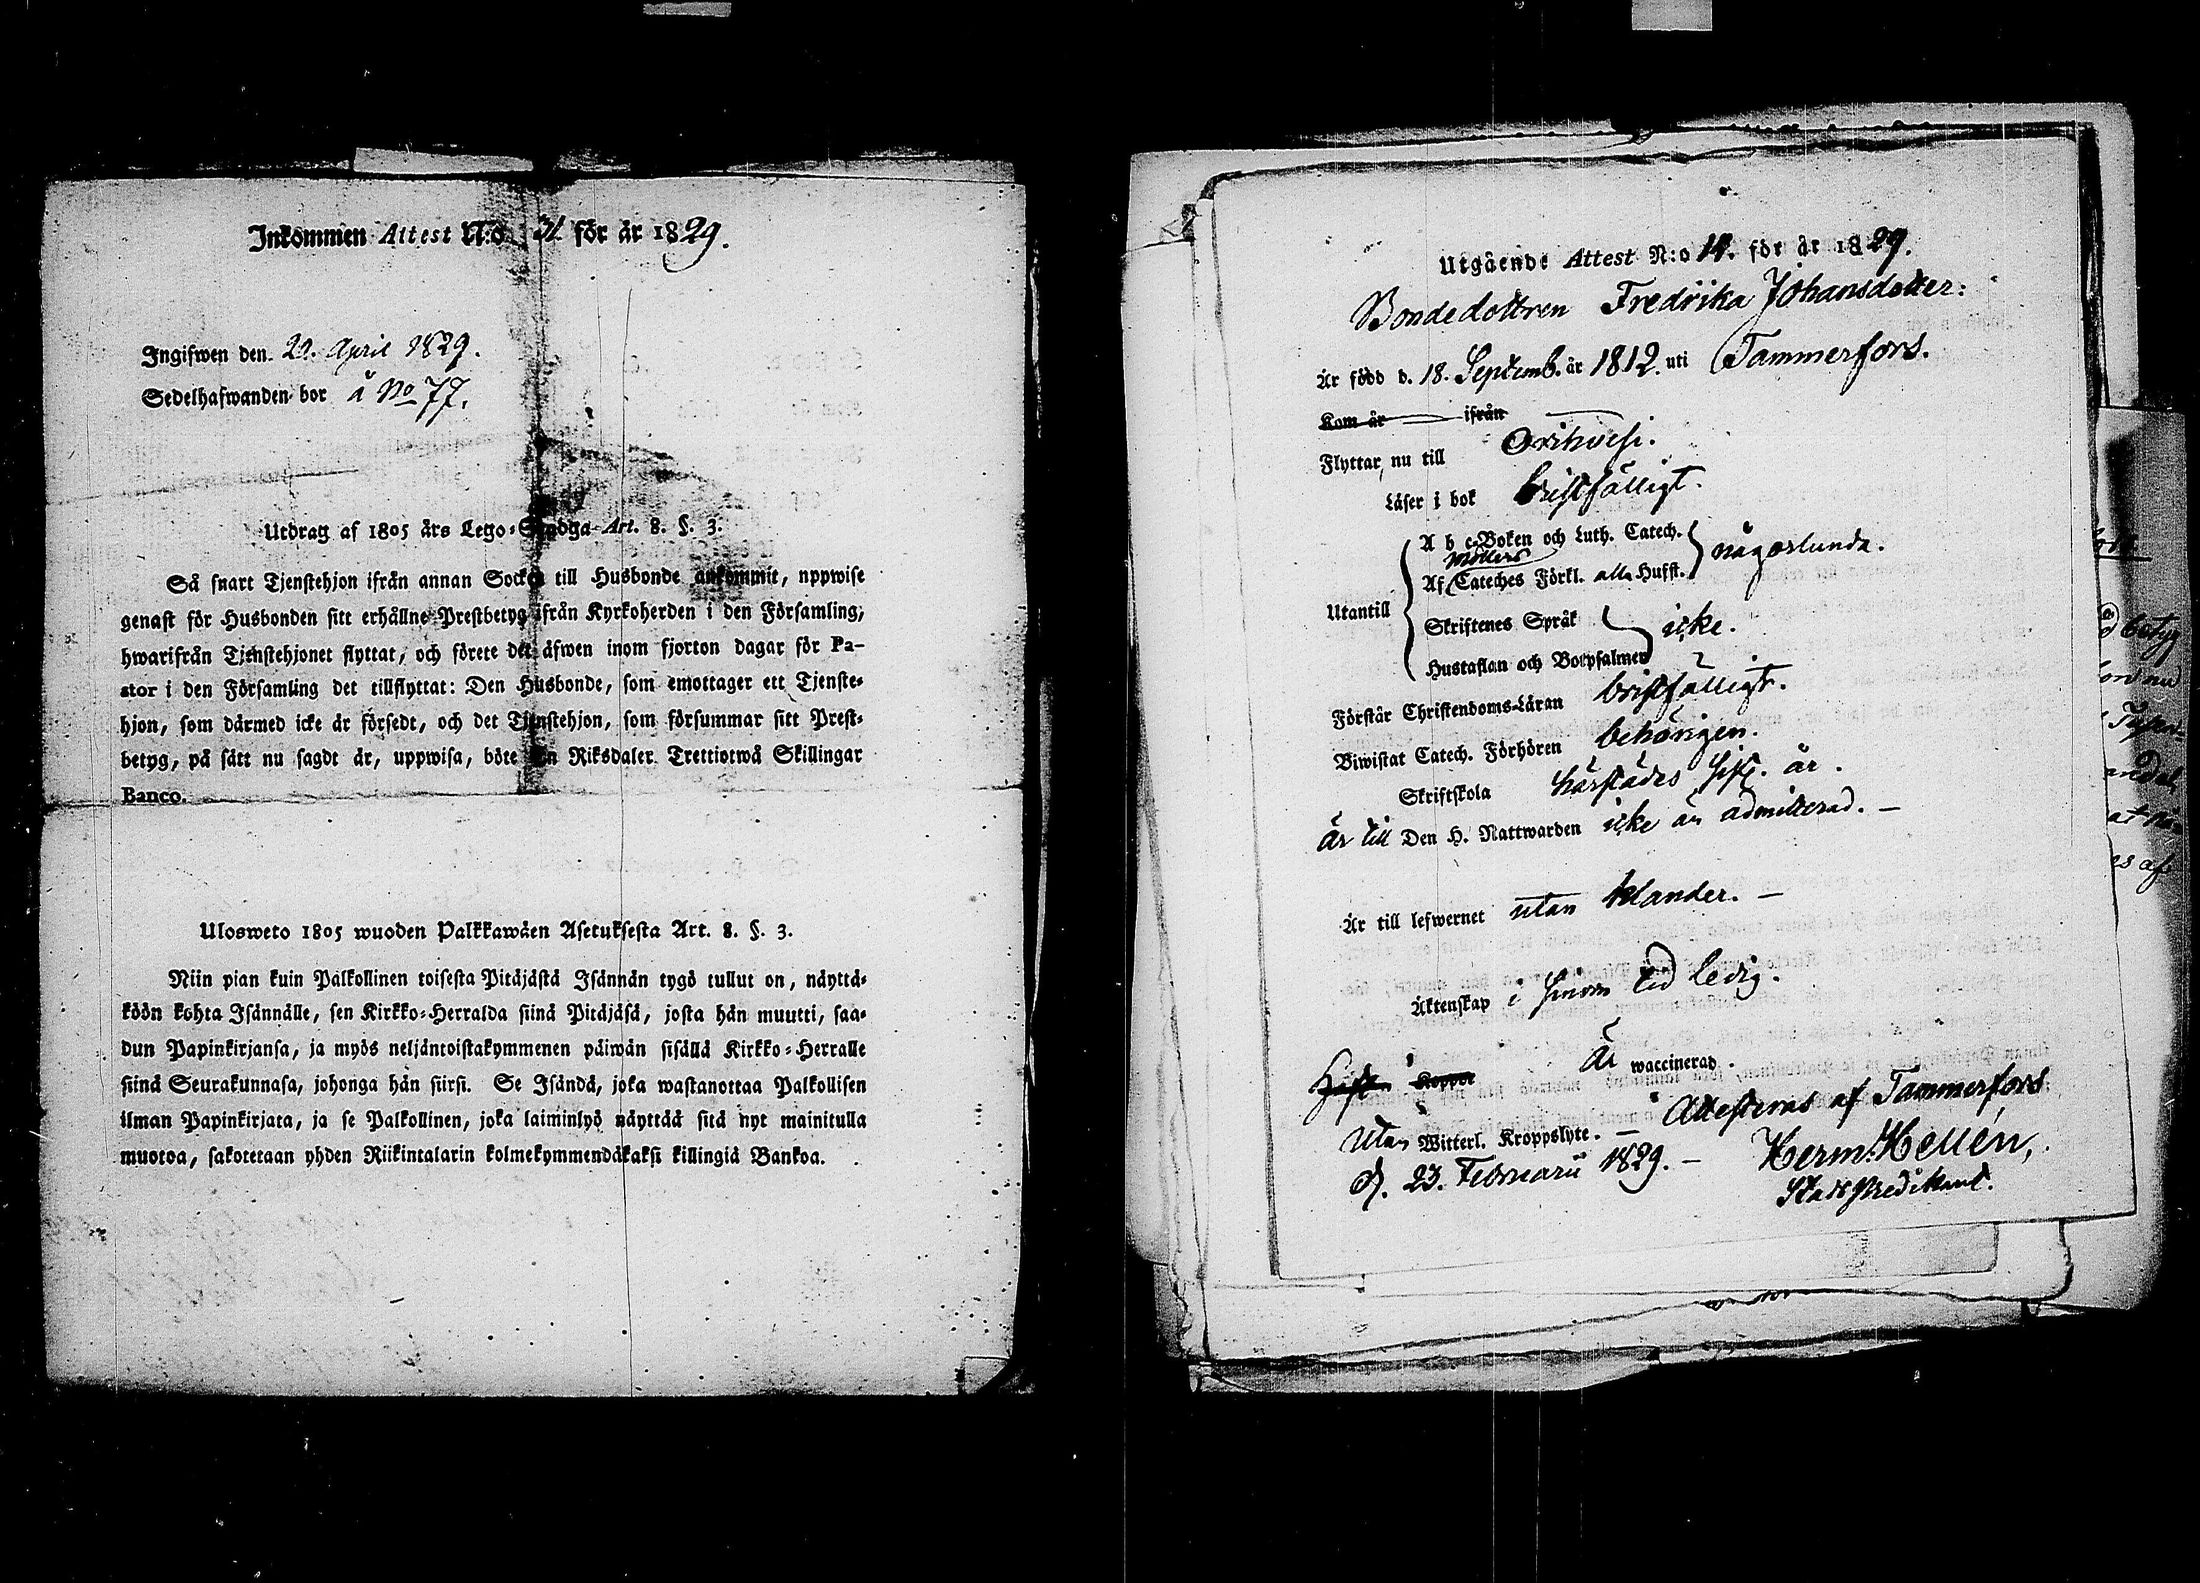 Inkommen Attest N:o 31. för år 1829.
Ingifwen den 20. April 1829.
Sedelhafwanden bor å No 77.
Utdrag af 1805 års Lego-Stadga Art. 8. §. 3.
Så snart Tjenstehjon ifrån annan Socken till Husbonde ankommit, uppwise
genast för Husbonden sitt erhållne Prestbetyg ifrån Kyrkoherden i den Församling,
hwarifrån Tjenstehjonet flyttat, och förete det äfwen inom fjorton dagar för Pa-
stor i den Församling det tillflyttat: Den Husbonde, som emottager ett Tjenste-
hjon, som därmed icke är försedt, och det Tjenstehjon, som försummar sitt Prest-
betyg, på sätt nu sagdt är, uppwisa, böte En Riksdaler Trettiotwå Skillingar
Banco.
Ulosweto 1805 wuoden Palkkawäen Asetuksesta Art. 8. §. 3.
Niin pian kuin Palkollinen toisesta Pitäjästä Isännän tygö tullut on, näyttä-
köön kohta Isännälle, sen Kirkko-Herralda siinä Pitäjäsä, josta hän muutti, saa-
dun Papinkirjansa, ja myös neljäntoistakymmenen päiwän sisällä Kirkko-Herralle
siinä Seurakunnasa, johonga hän siirsi. Se Isändä, joka wastanottaa Palkollisen
ilman Papinkirjata, ja se Palkollinen, joka laiminlyö näyttää sitä nyt mainitulla
muotoa, sakotetaan yhden Riikintalarin kolmekymmendäkaksi killingiä Bankoa.
Utgående Attest N:o 14. för år 1829.
Bondedottren Fredrika Johansdotter:
Är född d. 18. Septemb. år 1812. uti Tammerfors.
Kom år ifrån
Flyttar nu till Orihvesi.
Läser i bok bristfälligt.
A b c-Boken och Luth. Catech.
Möllers någorlunda.
Af Cateches Förkl. alla Husst.
Utantill
Skriftenes Språk icke.
Hustaflan och Botpsalmer
Förstår Christendoms-Läran bristfälligt.
Biwistat Catech. Förhören behörigen.
Skriftskola härstädes sistl. år.
är till Den H. Nattwarden icke än admitterad. —
Är till lefwernet utan klander. —
Äktenskap i sinom tid ledig.
Haft Koppor Är waccinerad.
Utan Witterl. Kroppslyte. — Attesteras af Tammerfors
d. 23. Februarii 1829. — Herm. Hellén,
Stadspredikant.